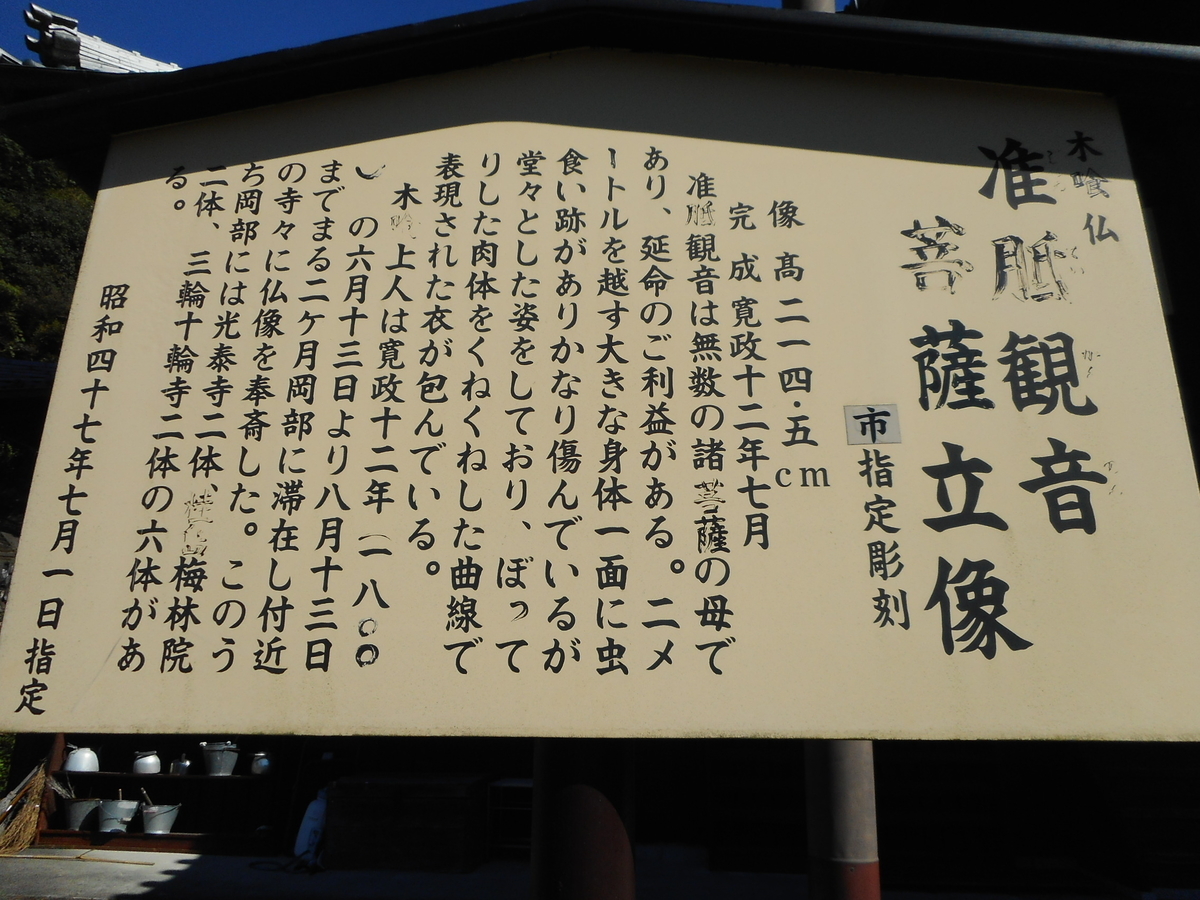 木喰仏
准胝観音
菩薩立像
市指定彫刻
像高二一四・五cm
完成寛政十二年七月
准胝観音は無数の諸菩薩の母で
あり、延命のご利益がある。二メ
ートルを越す大きな身体一面に虫
食い跡がありかなり傷んでいるが
堂々とした姿をしており、ぼって
りした肉体をくねくねした曲線で
表現された衣が包んでいる。
木喰上人は寛政十二年(一八〇〇
)の六月十三日より八月十三日
までまる二ケ月岡部に滞在し付近
の寺々に仏像を奉斎した。このう
ち岡部には光泰寺二体、梅林院
二体、三輪十輪寺二体の六体があ
る。
昭和四十七年七月一日指定